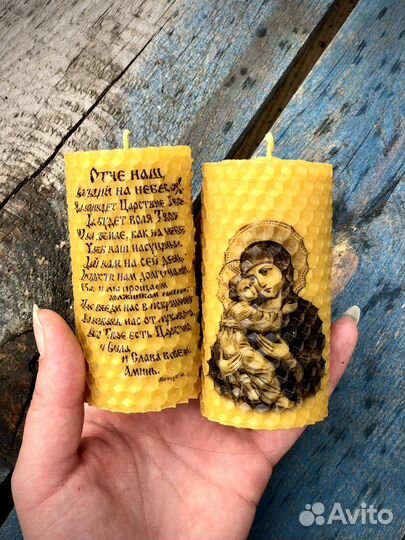 Отче наш,
на небесах
Царствие Твое,
Да будет воля Твоя
и на земле, как на небе
Хлеб наш насущный
Дай нам на сей день,
и прости нам долги наши,
Как и мы прощаем
должникам нашим,
Не введи нас в искушение
Но избавь нас от лукавого
Твое есть Царство
и Сила
и Слава вовеки
Аминь.
Avito